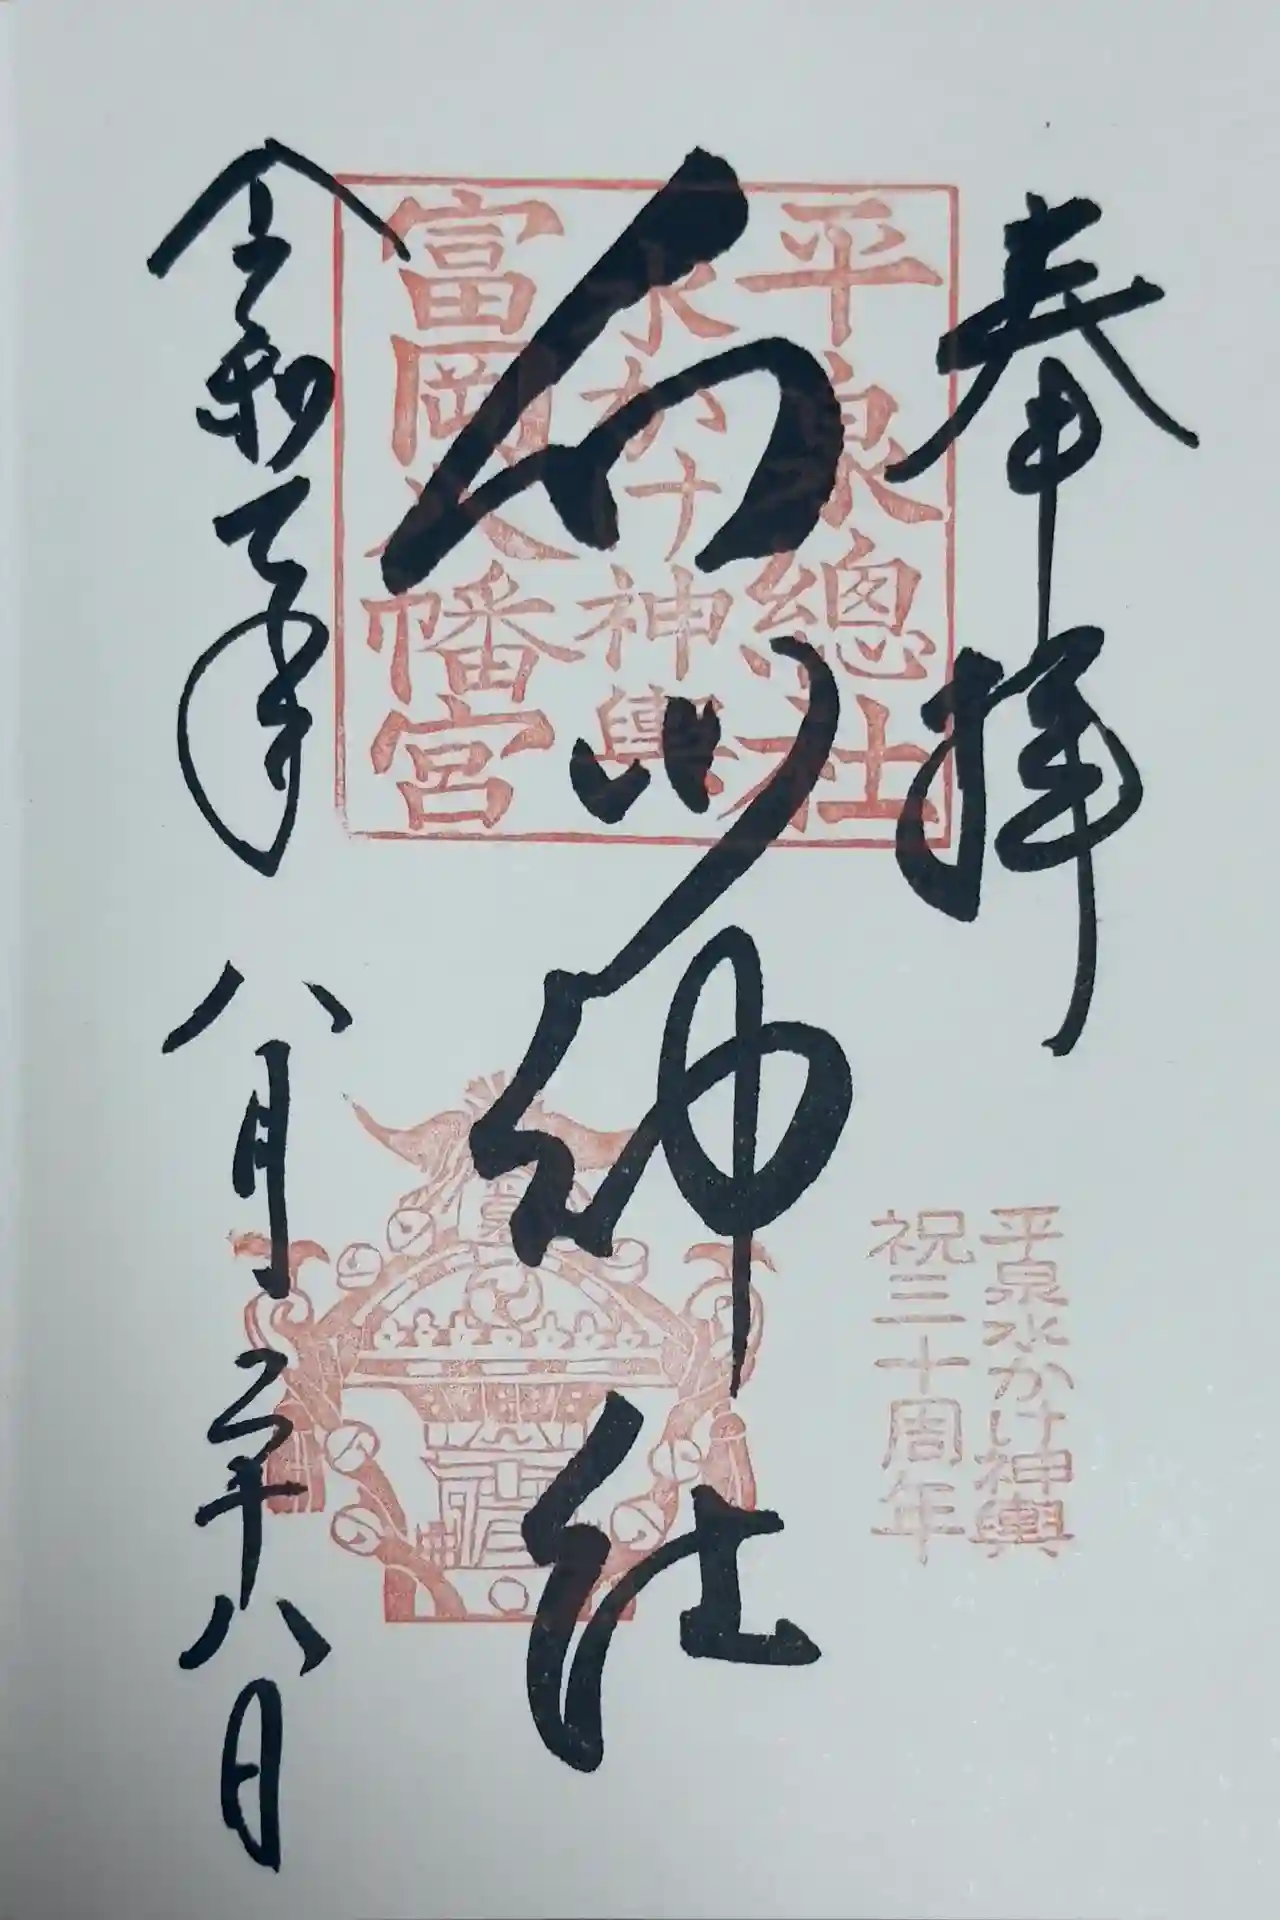 奉拝
平泉總社
水かけ神輿
富岡八幡宮
白山神社
平泉水かけ神輿
祝三十周年
令和年八月二十八日